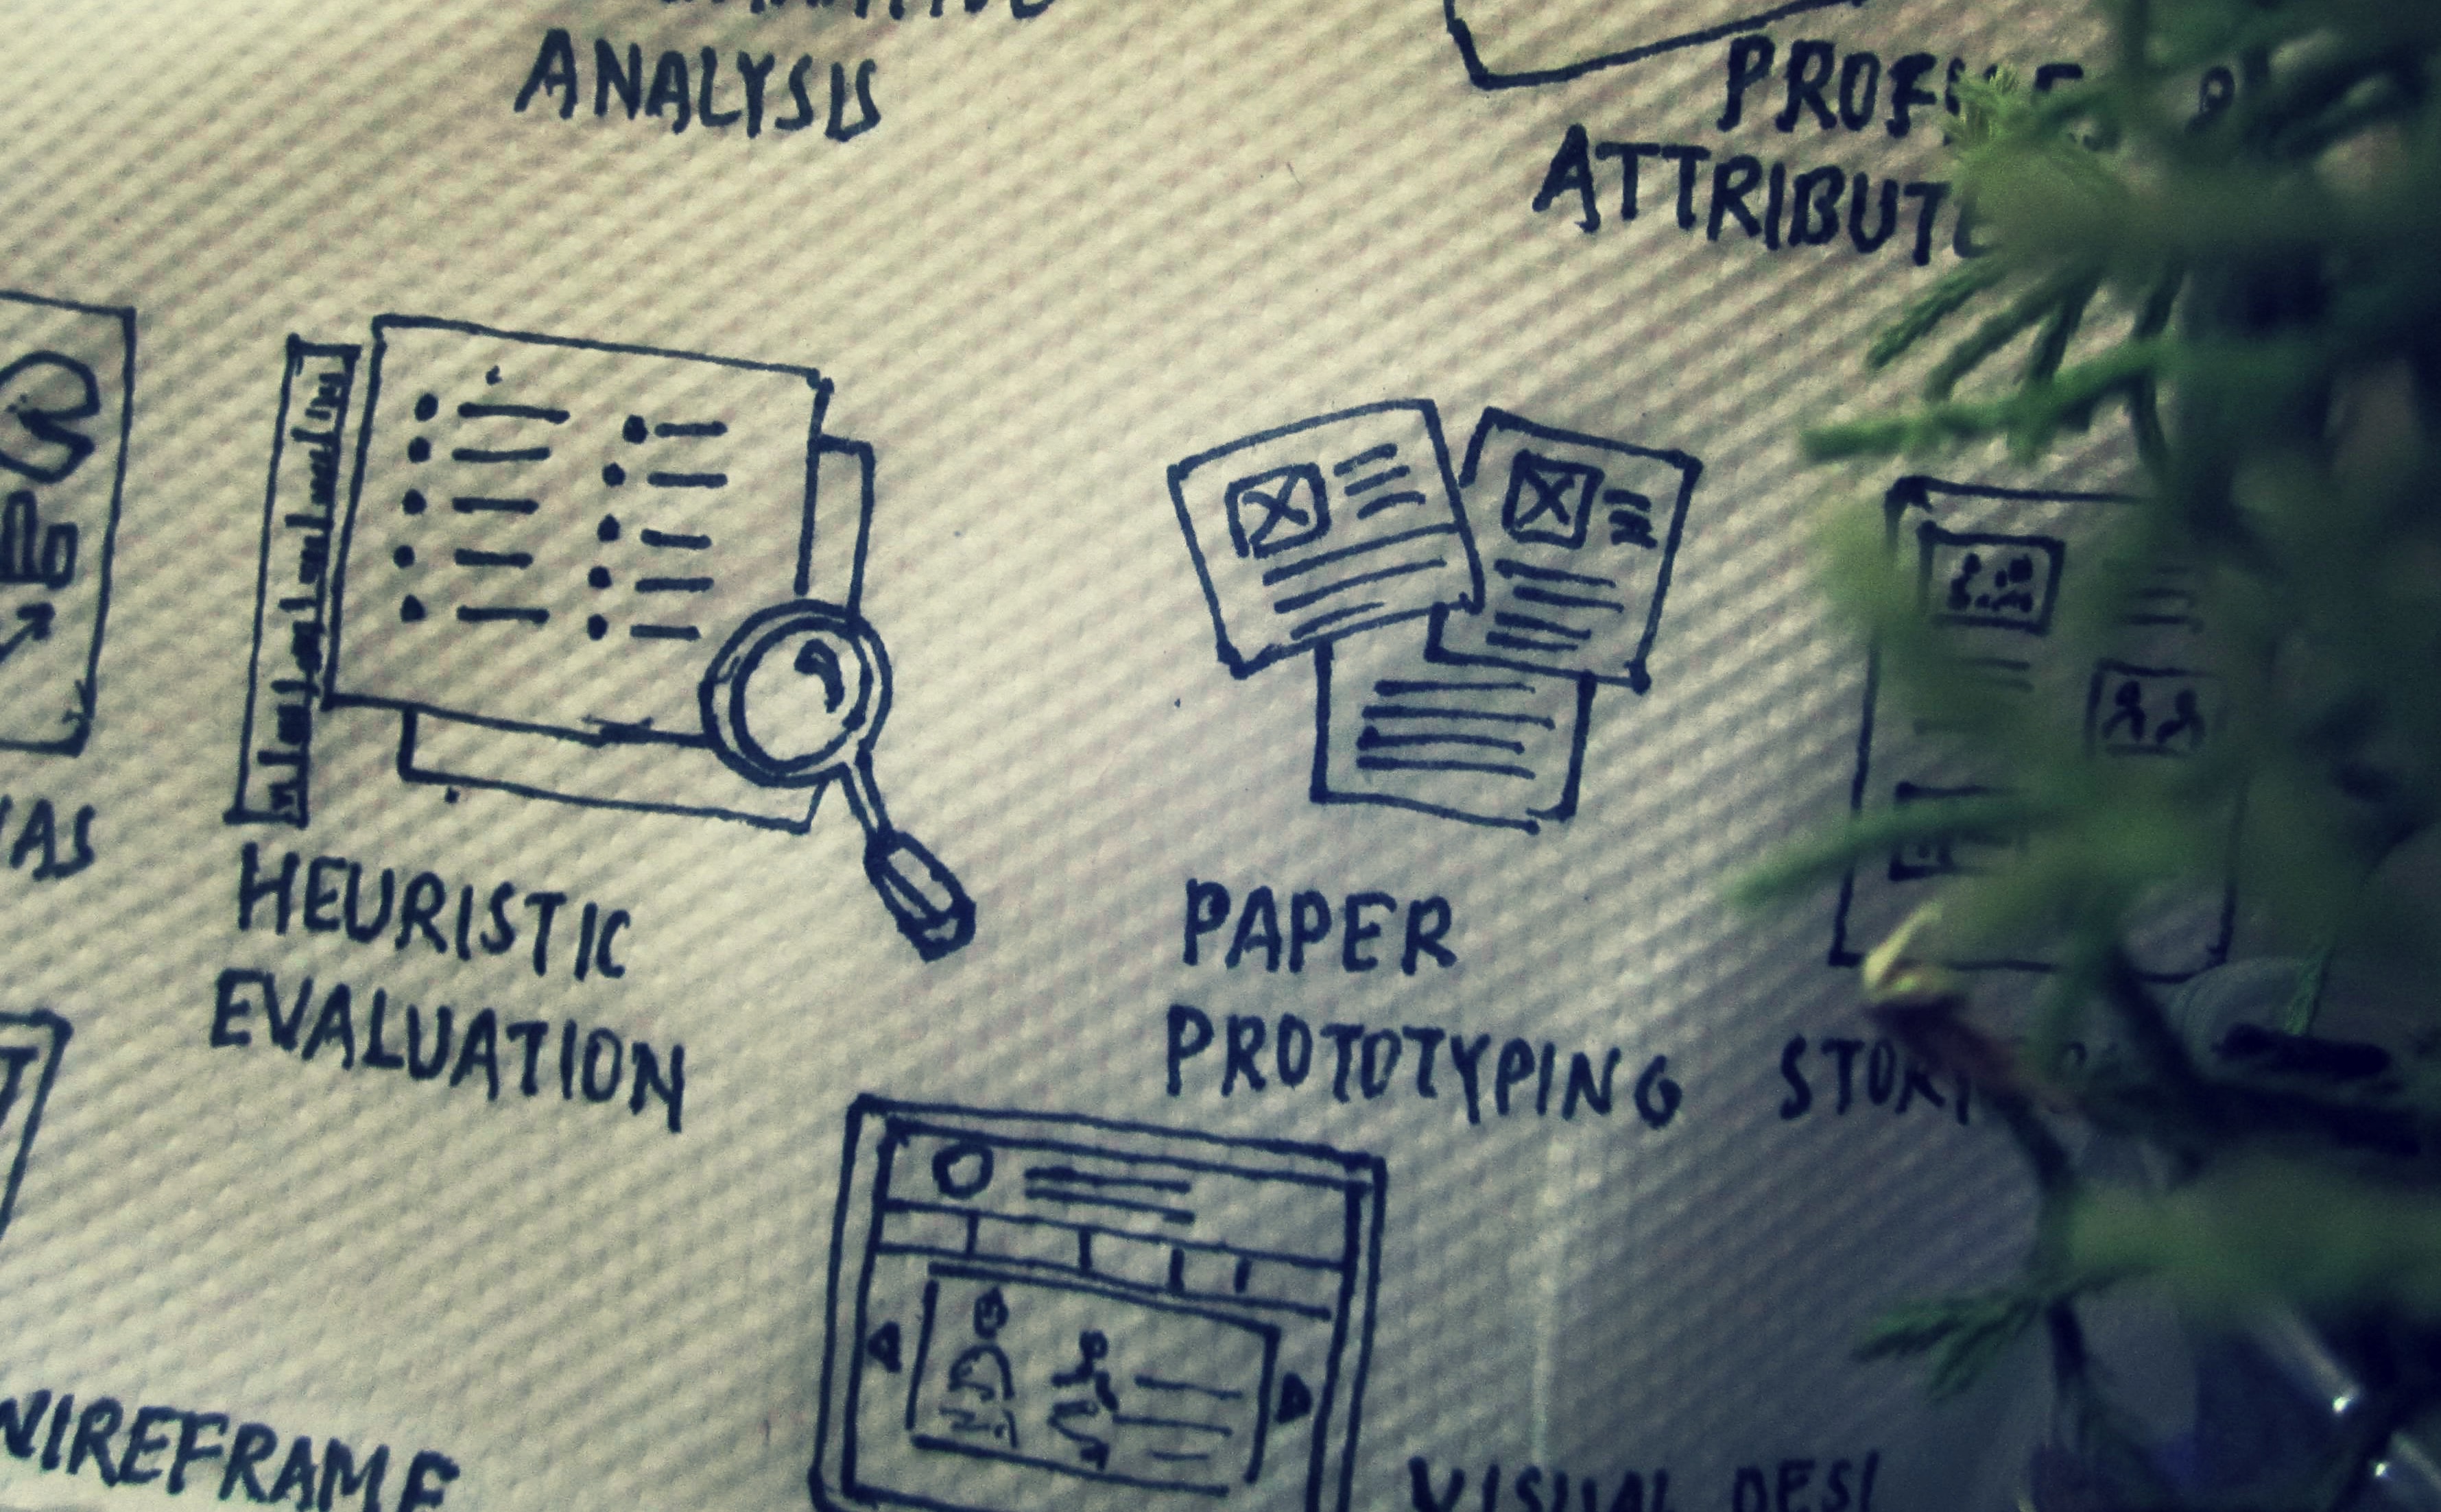 ANALYSIS
PROFILE
ATTRIBUTE
HEURISTIC
EVALUATION
PAPER
PROTOTYPING
STORY
WIREFRAME
VISUAL DESI